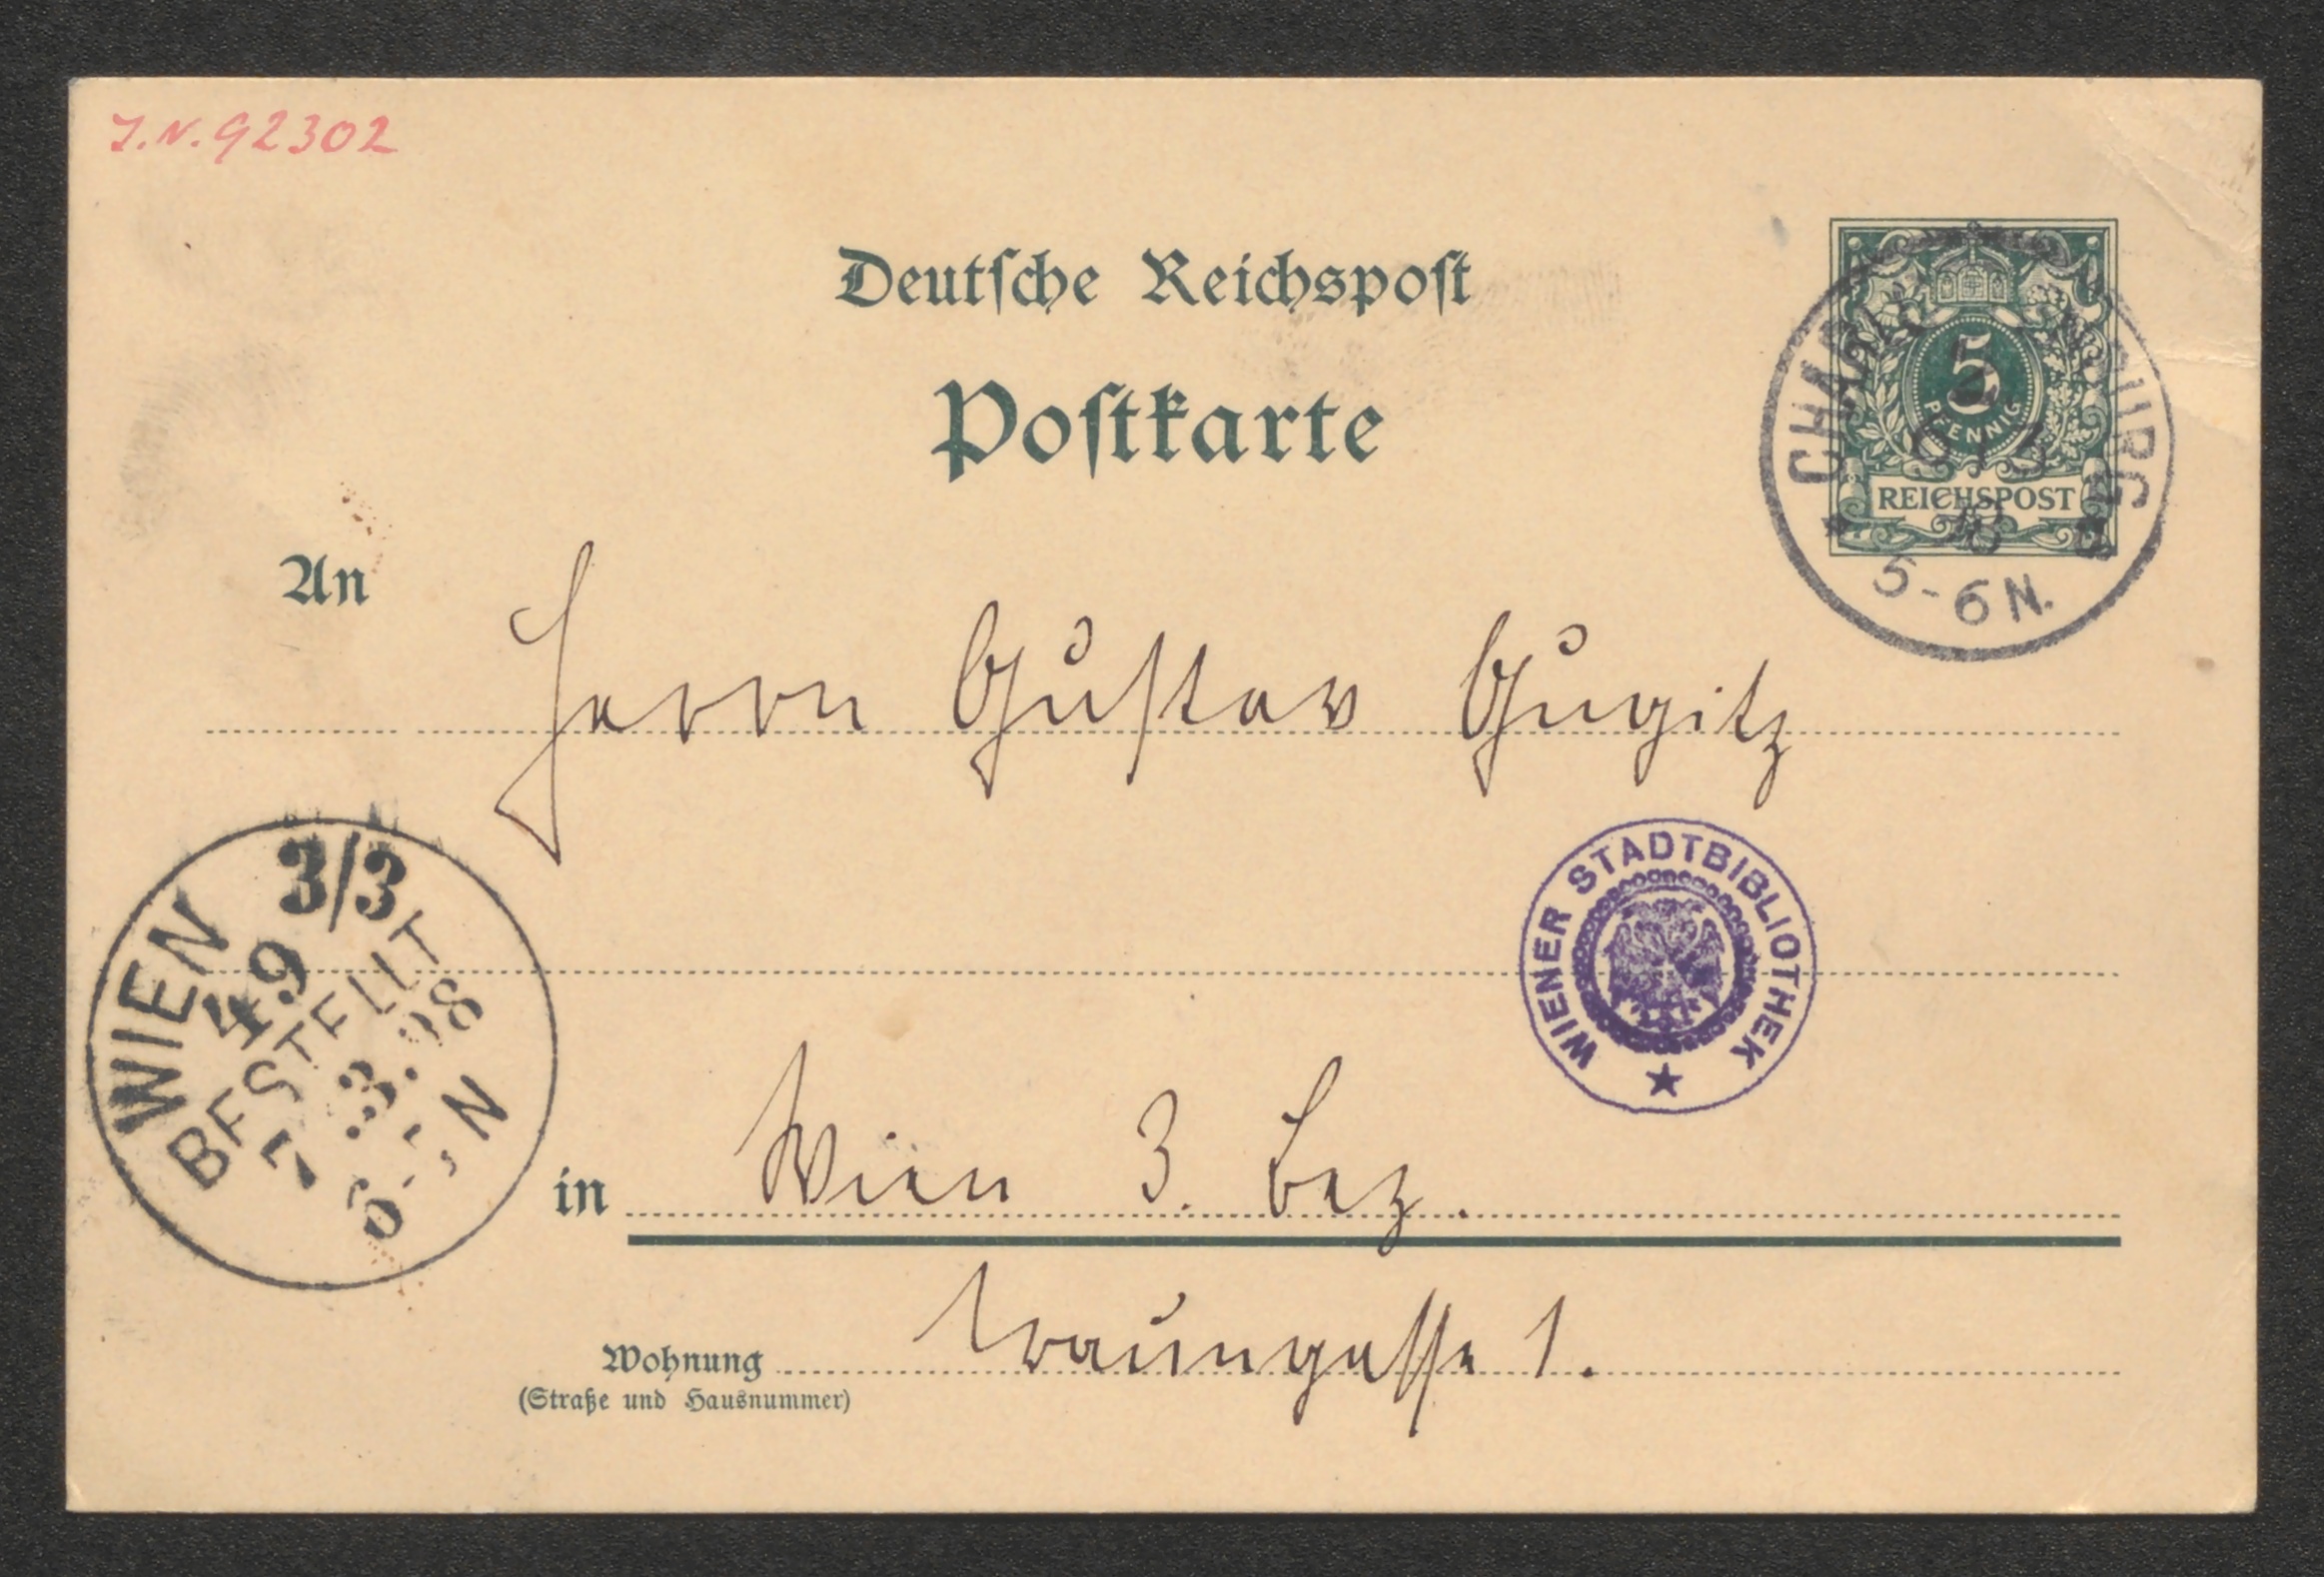 J.N. 92302
Deutſche Reichspoſt
Poſtkarte
5
PFENNIG
REICHSPOST
5-6 N.
An
Herrn Gustav Gugitz
WIEN 3/3
49
BESTELLT
7 3. 98
N
WIENER STADTBIBLIOTHEK
in Wien 3. Bez.
Wohnung Traungasse 1.
(Straße und Hausnummer)